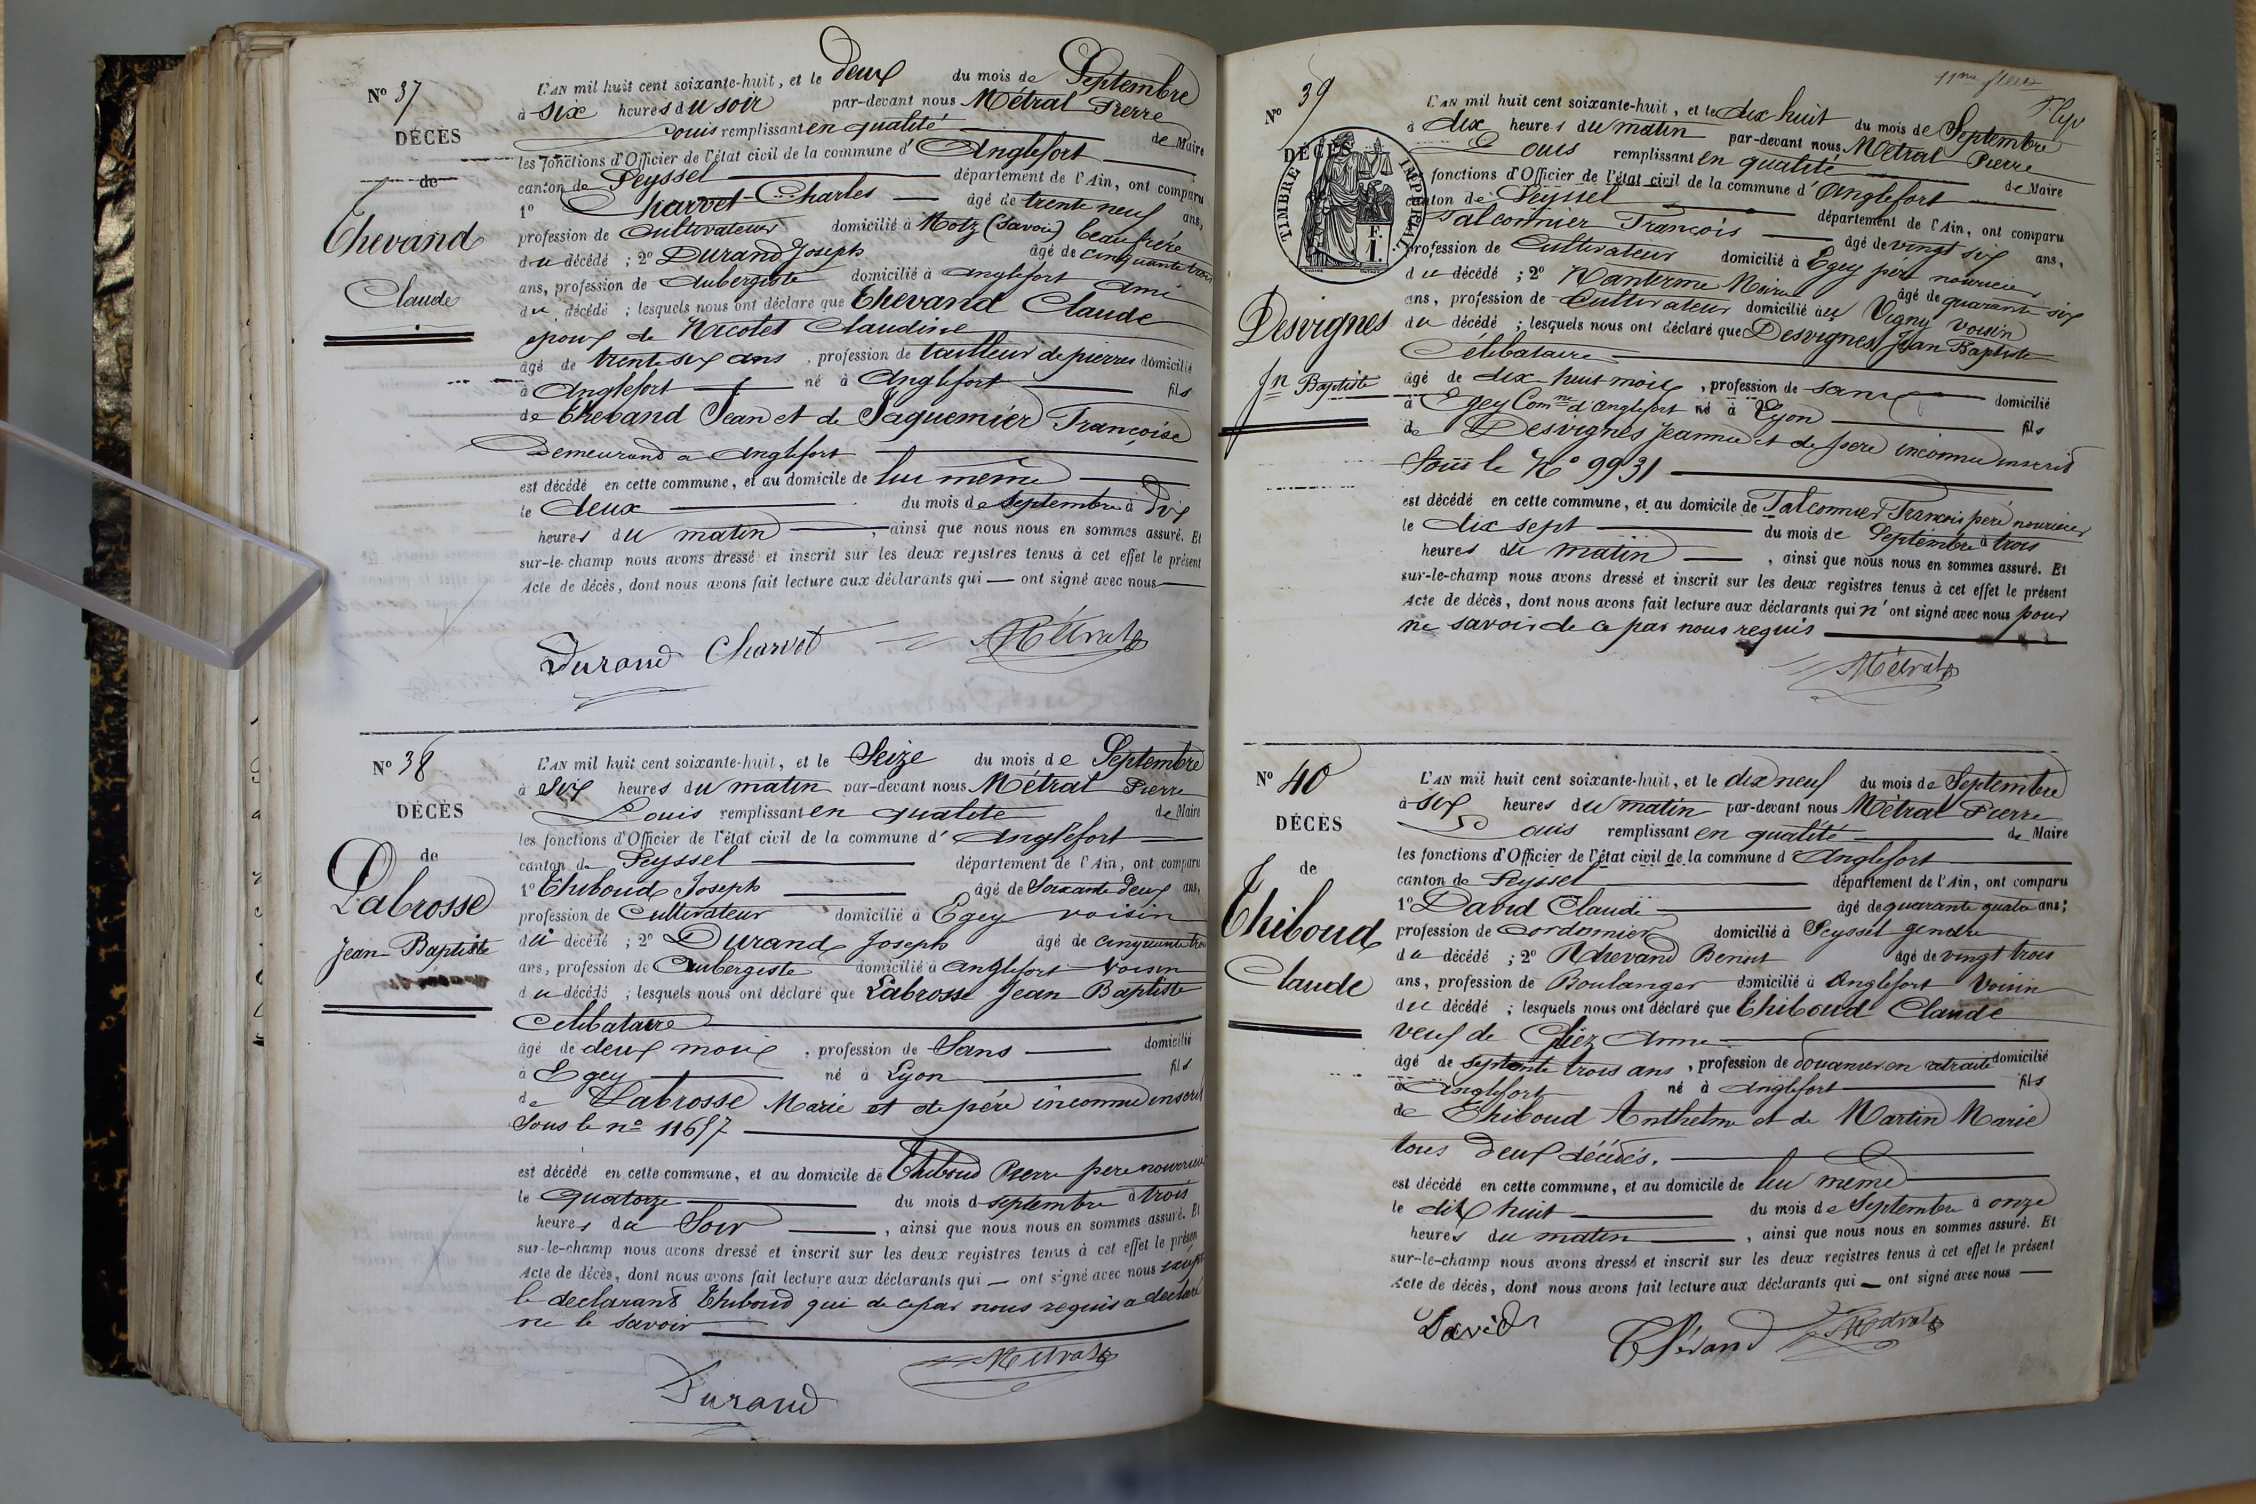 N° 37
DÉCÈS
de
Thevand
Claude
L'AN mil huit cent soixante-huit, et le deux du mois de Septembre
à six heures du soir par-devant nous Métral Pierre
Louis remplissant en qualité de Maire
les fonctions d'Officier de l'état civil de la commune d'Anglefort
canton de Seyssel département de l'Ain, ont comparu
1° Charvet Charles âgé de trente neuf ans,
profession de Cultivateur domicilié à Motz (Savoie) beau frère
du décédé ; 2° Durand Joseph âgé de cinquante trois
ans, profession de Aubergiste domicilié à Anglefort ami
du décédé ; lesquels nous ont déclaré que Thevand Claude
époux de Nicolet Claudine
âgé de trente six ans, profession de tailleur de pierres domicilié
à Anglefort né à Anglefort fils
de Thevand Jean et de Jaquemier Françoise
Demeurand a Anglefort
est décédé en cette commune, et au domicile de lui même
le deux du mois de Septembre à dix
heures du matin, ainsi que nous nous en sommes assuré. Et
sur-le-champ nous avons dressé et inscrit sur les deux registres tenus à cet effet le présent
Acte de décès, dont nous avons fait lecture aux déclarants qui — ont signé avec nous
Durand Charvet Métral
N° 38
DÉCÈS
de
Labrosse
Jean Baptiste
L'AN mil huit cent soixante-huit, et le Seize du mois de Septembre
à Six heures du matin par-devant nous Métral Pierre
Louis remplissant en qualité de Maire
les fonctions d'Officier de l'état civil de la commune d'Anglefort
canton de Seyssel département de l'Ain, ont comparu
1° Thiboud Joseph âgé de Soixante Deux ans,
profession de Cultivateur domicilié à Egey voisin
du décédé ; 2° Durand Joseph âgé de cinquante trois
ans, profession de Aubergiste domicilié à Anglefort voisin
du décédé ; lesquels nous ont déclaré que Labrosse Jean Baptiste
Celibataire
âgé de deux mois, profession de Sans domicilié
à Egey né à Lyon fils
de Labrosse Marie et de père inconnu inscrit
Sous le n° 11657
est décédé en cette commune, et au domicile de Thiboud Pierre père nourricier
le quatorze du mois d septembre à trois
heures du Soir, ainsi que nous nous en sommes assuré. Et
sur-le-champ nous avons dressé et inscrit sur les deux registres tenus à cet effet le présent
Acte de décès, dont nous avons fait lecture aux déclarants qui — ont signé avec nous excepté
le declarant Thiboud qui de ce par nous requis a déclaré
ne le savoir
Métral
Durand
11me feuille
N° 39
DÉCÈS
TIMBRE IMPÉRIAL
F. 1.
Desvignes
Jn Baptiste
L'AN mil huit cent soixante-huit, et le dix huit du mois de Septembre
à dix heures du matin par-devant nous Métral Pierre
Louis remplissant en qualité de Maire
fonctions d'Officier de l'état civil de la commune d'Anglefort
canton de Seyssel département de l'Ain, ont comparu
Falconnier François âgé de vingt six ans,
profession de Cultivateur domicilié à Egey père nourricier
du décédé ; 2° Nanterme âgé de quarante six
ans, profession de Cultivateur domicilié au Vigny voisin
du décédé ; lesquels nous ont déclaré que Desvignes Jean Baptiste
Célibataire
âgé de dix-huit mois, profession de sans domicilié
à Egey Comne d'Anglefort né à Lyon fils
de Desvignes Jeannie et de père inconnu inscrit
Sous le N° 9931
est décédé en cette commune, et au domicile de Falconnier François père nourricier
le dix sept du mois de Septembre à trois
heures du matin, ainsi que nous nous en sommes assuré. Et
sur-le-champ nous avons dressé et inscrit sur les deux registres tenus à cet effet le présent
Acte de décès, dont nous avons fait lecture aux déclarants qui n'ont signé avec nous pour
ne savoir de ce par nous requis
Métral
N° 40
DÉCÈS
de
Thiboud
Claude
L'AN mil huit cent soixante-huit, et le dix neuf du mois de Septembre
à six heures du matin par-devant nous Métral Pierre
Louis remplissant en qualité de Maire
les fonctions d'Officier de l'état civil de la commune d Anglefort
canton de Seyssel département de l'Ain, ont comparu
1° David Claude âgé de quarante quatre ans;
profession de Cordonnier domicilié à Seyssel gendre
du décédé ; 2° Benoit âgé de vingt trois
ans, profession de Boulanger domicilié à Anglefort Voisin
du décédé ; lesquels nous ont déclaré que Thiboud Claude
veuf de Anne
âgé de septente trois ans, profession de douanier en retraite domicilié
à Anglefort né à Anglefort fils
de Thiboud Anthelme et de Martin Marie
tous Deux décédés.
est décédé en cette commune, et au domicile de lui meme
le dix huit du mois de Septembre à onze
heures du matin, ainsi que nous nous en sommes assuré. Et
sur-le-champ nous avons dressé et inscrit sur les deux registres tenus à cet effet le présent
Acte de décès, dont nous avons fait lecture aux déclarants qui — ont signé avec nous —
David Métral